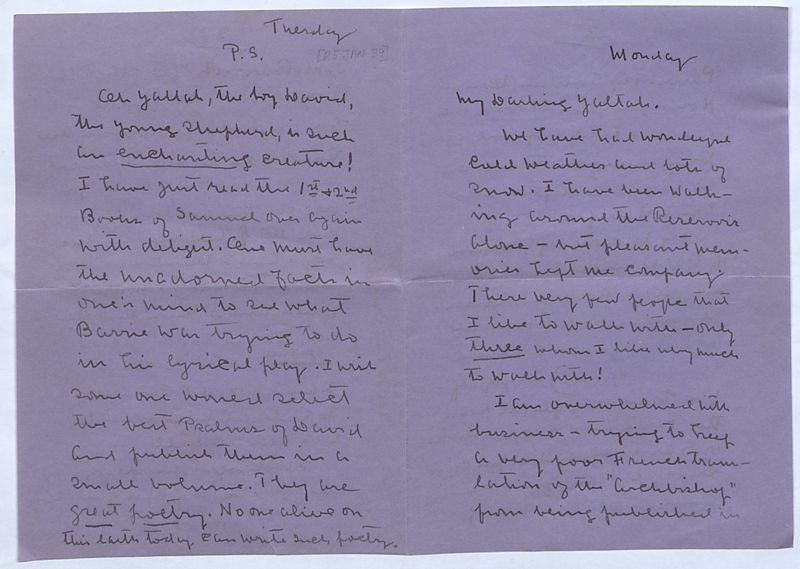 Tuesday
P.S.
[25 JAN 39]
Oh Yaltah, the boy David,
the young shepherd, is such
an enchanting creature!
I have just read the 1st + 2nd
Books of Samuel over again
with delight. One must have
the unadorned facts in
one's mind to see what
Barrie was trying to do
in his lyrical play. I wish
some one would select
the best Psalms of David
and publish them in a
small volume. They are
great poetry. No one alive on
this earth today can write such poetry.
Monday
My Darling Yaltah.
We have had wonderful
cold weather and lots of
snow. I have been walk-
ing around the Reservoir
alone - but pleasant mem-
ories kept me company.
There very few people that
I like to walk with - only
three whom I like very much
to walk with!
I am overwhelmed with
business - trying to keep
a very poor French trans-
lation of the "Archbishop"
from being published in